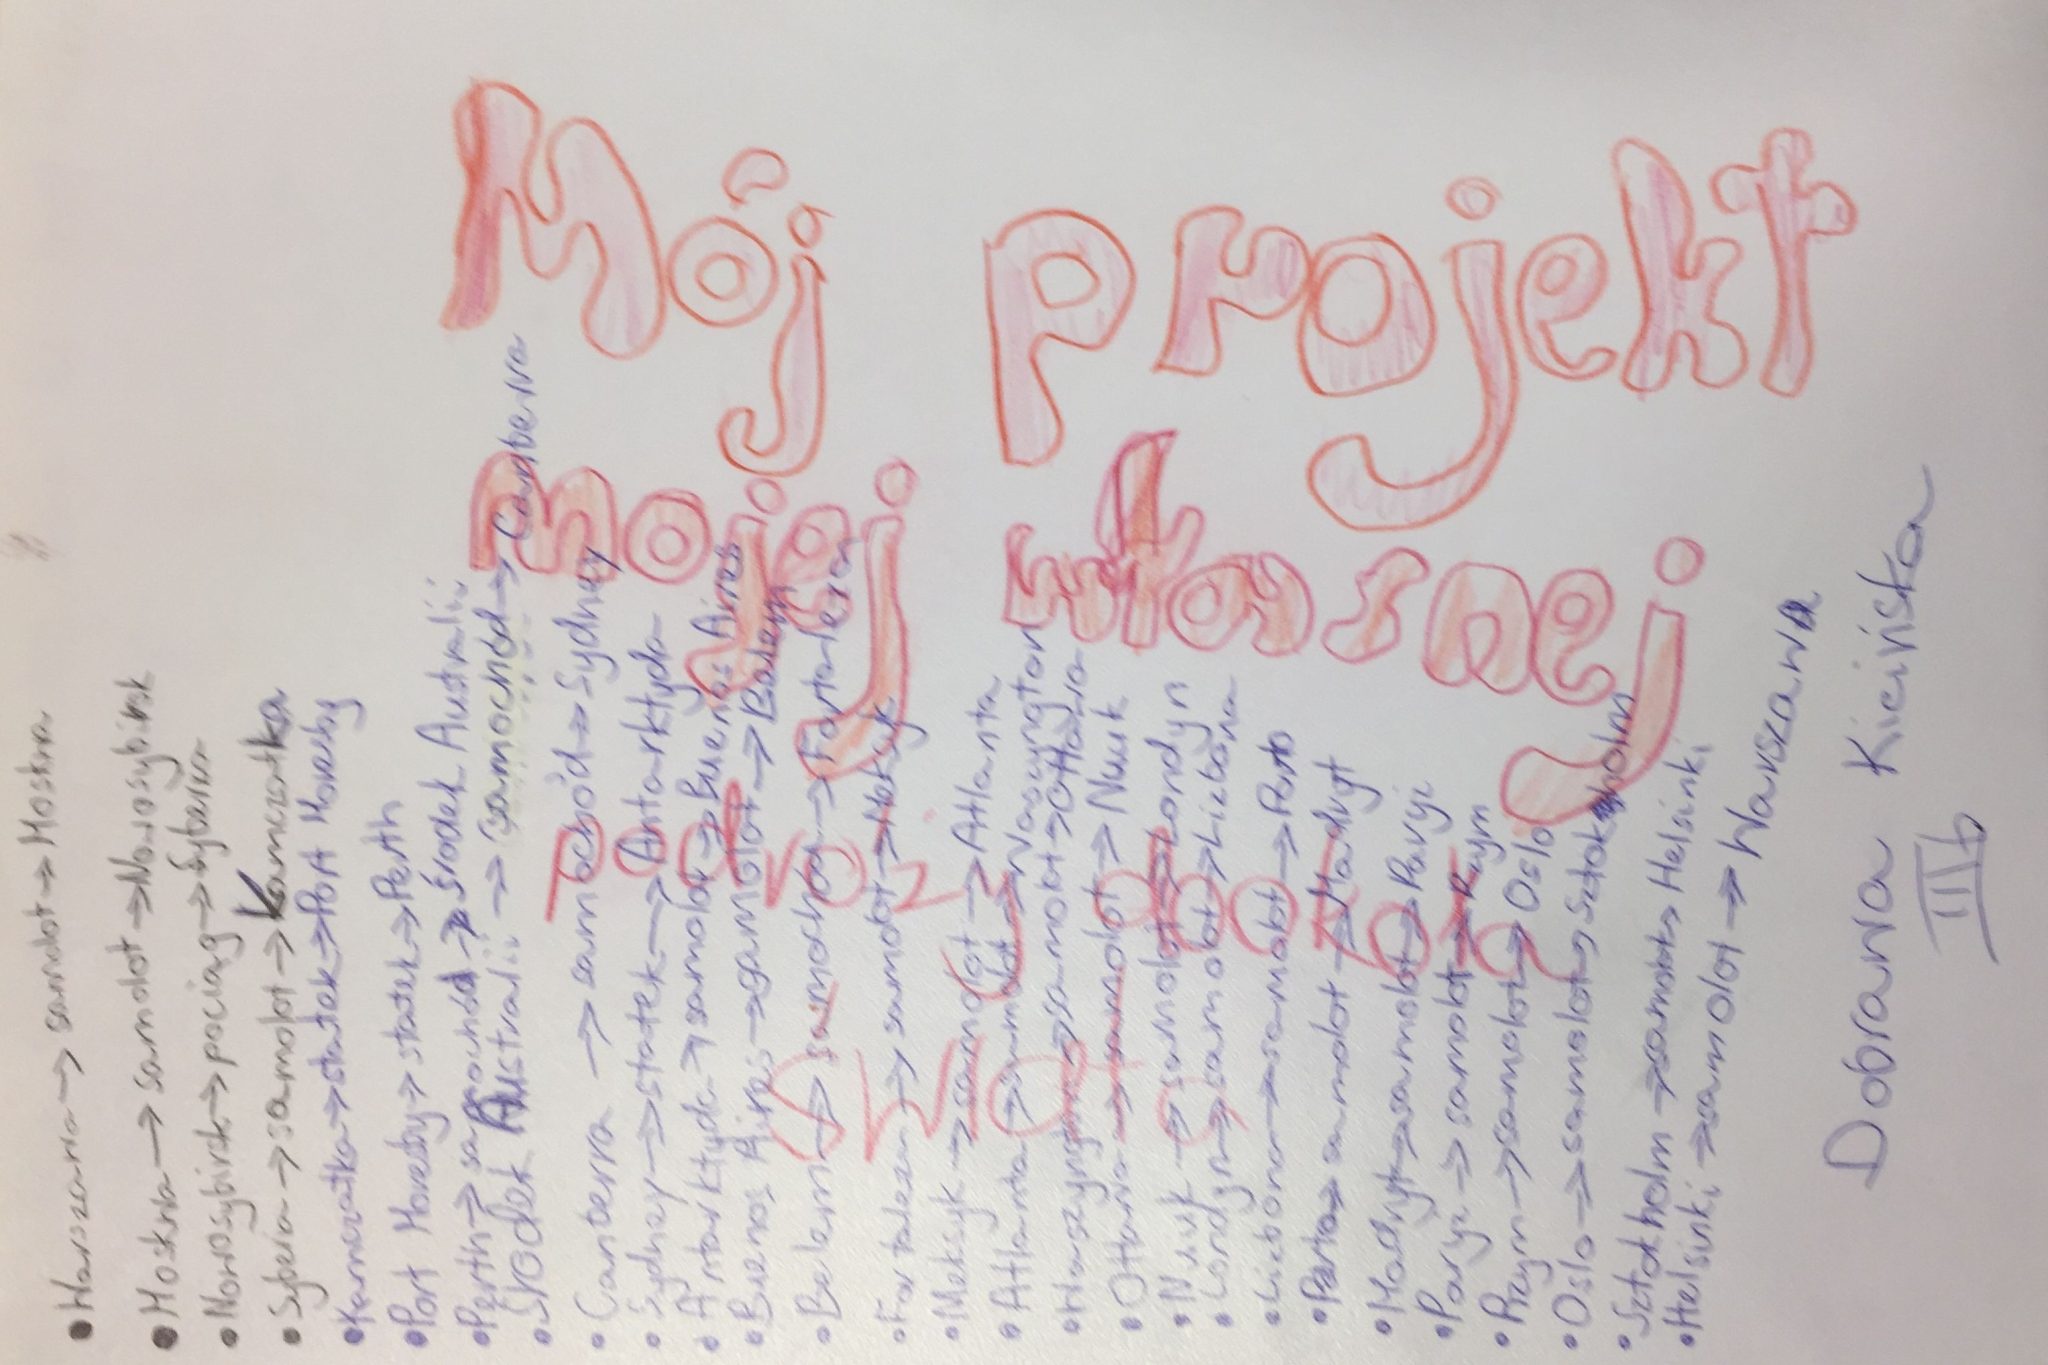 Mój projekt
mojej własnej
podróży dookoła
świata
• Warszawa → samolot → Moskwa
• Moskwa → samolot → Nowosybirsk
• Nowosybirsk → pociąg → Syberia
• Syberia → samolot → Kamczatka
• Kamczatka → statek → Port Moresby
• Port Moresby → statek → Perth
• Perth → samochód → Środek Australii
• Środek Australii → samochód → Canberra
• Canterra → samochód → Sydney
• Sydney → statek → Antarktyda
• Antarktyda → samolot → Buenos Aires
• Buenos Aires → samolot → Belem
• Belem → samochód → Fortalera
• Fortalera → samolot → Meksyk
• Meksyk → samolot → Atlanta
• Atlanta → samolot → Waszyngton
• Waszyngton → samolot → Ottawa
• Ottawa → samolot → Nuuk
• Nuuk → samolot → Londyn
• Londyn → samolot → Lizbona
• Lizbona → samolot → Porto
• Porto → samolot → Madryt
• Madryt → samolot → Paryż
• Paryż → samolot → Rzym
• Rzym → samolot → Oslo
• Oslo → samolot → Sztokholm
• Sztokholm → samolot → Helsinki
• Helsinki → samolot → Warszawa
Dobrawa Kicińska
III b